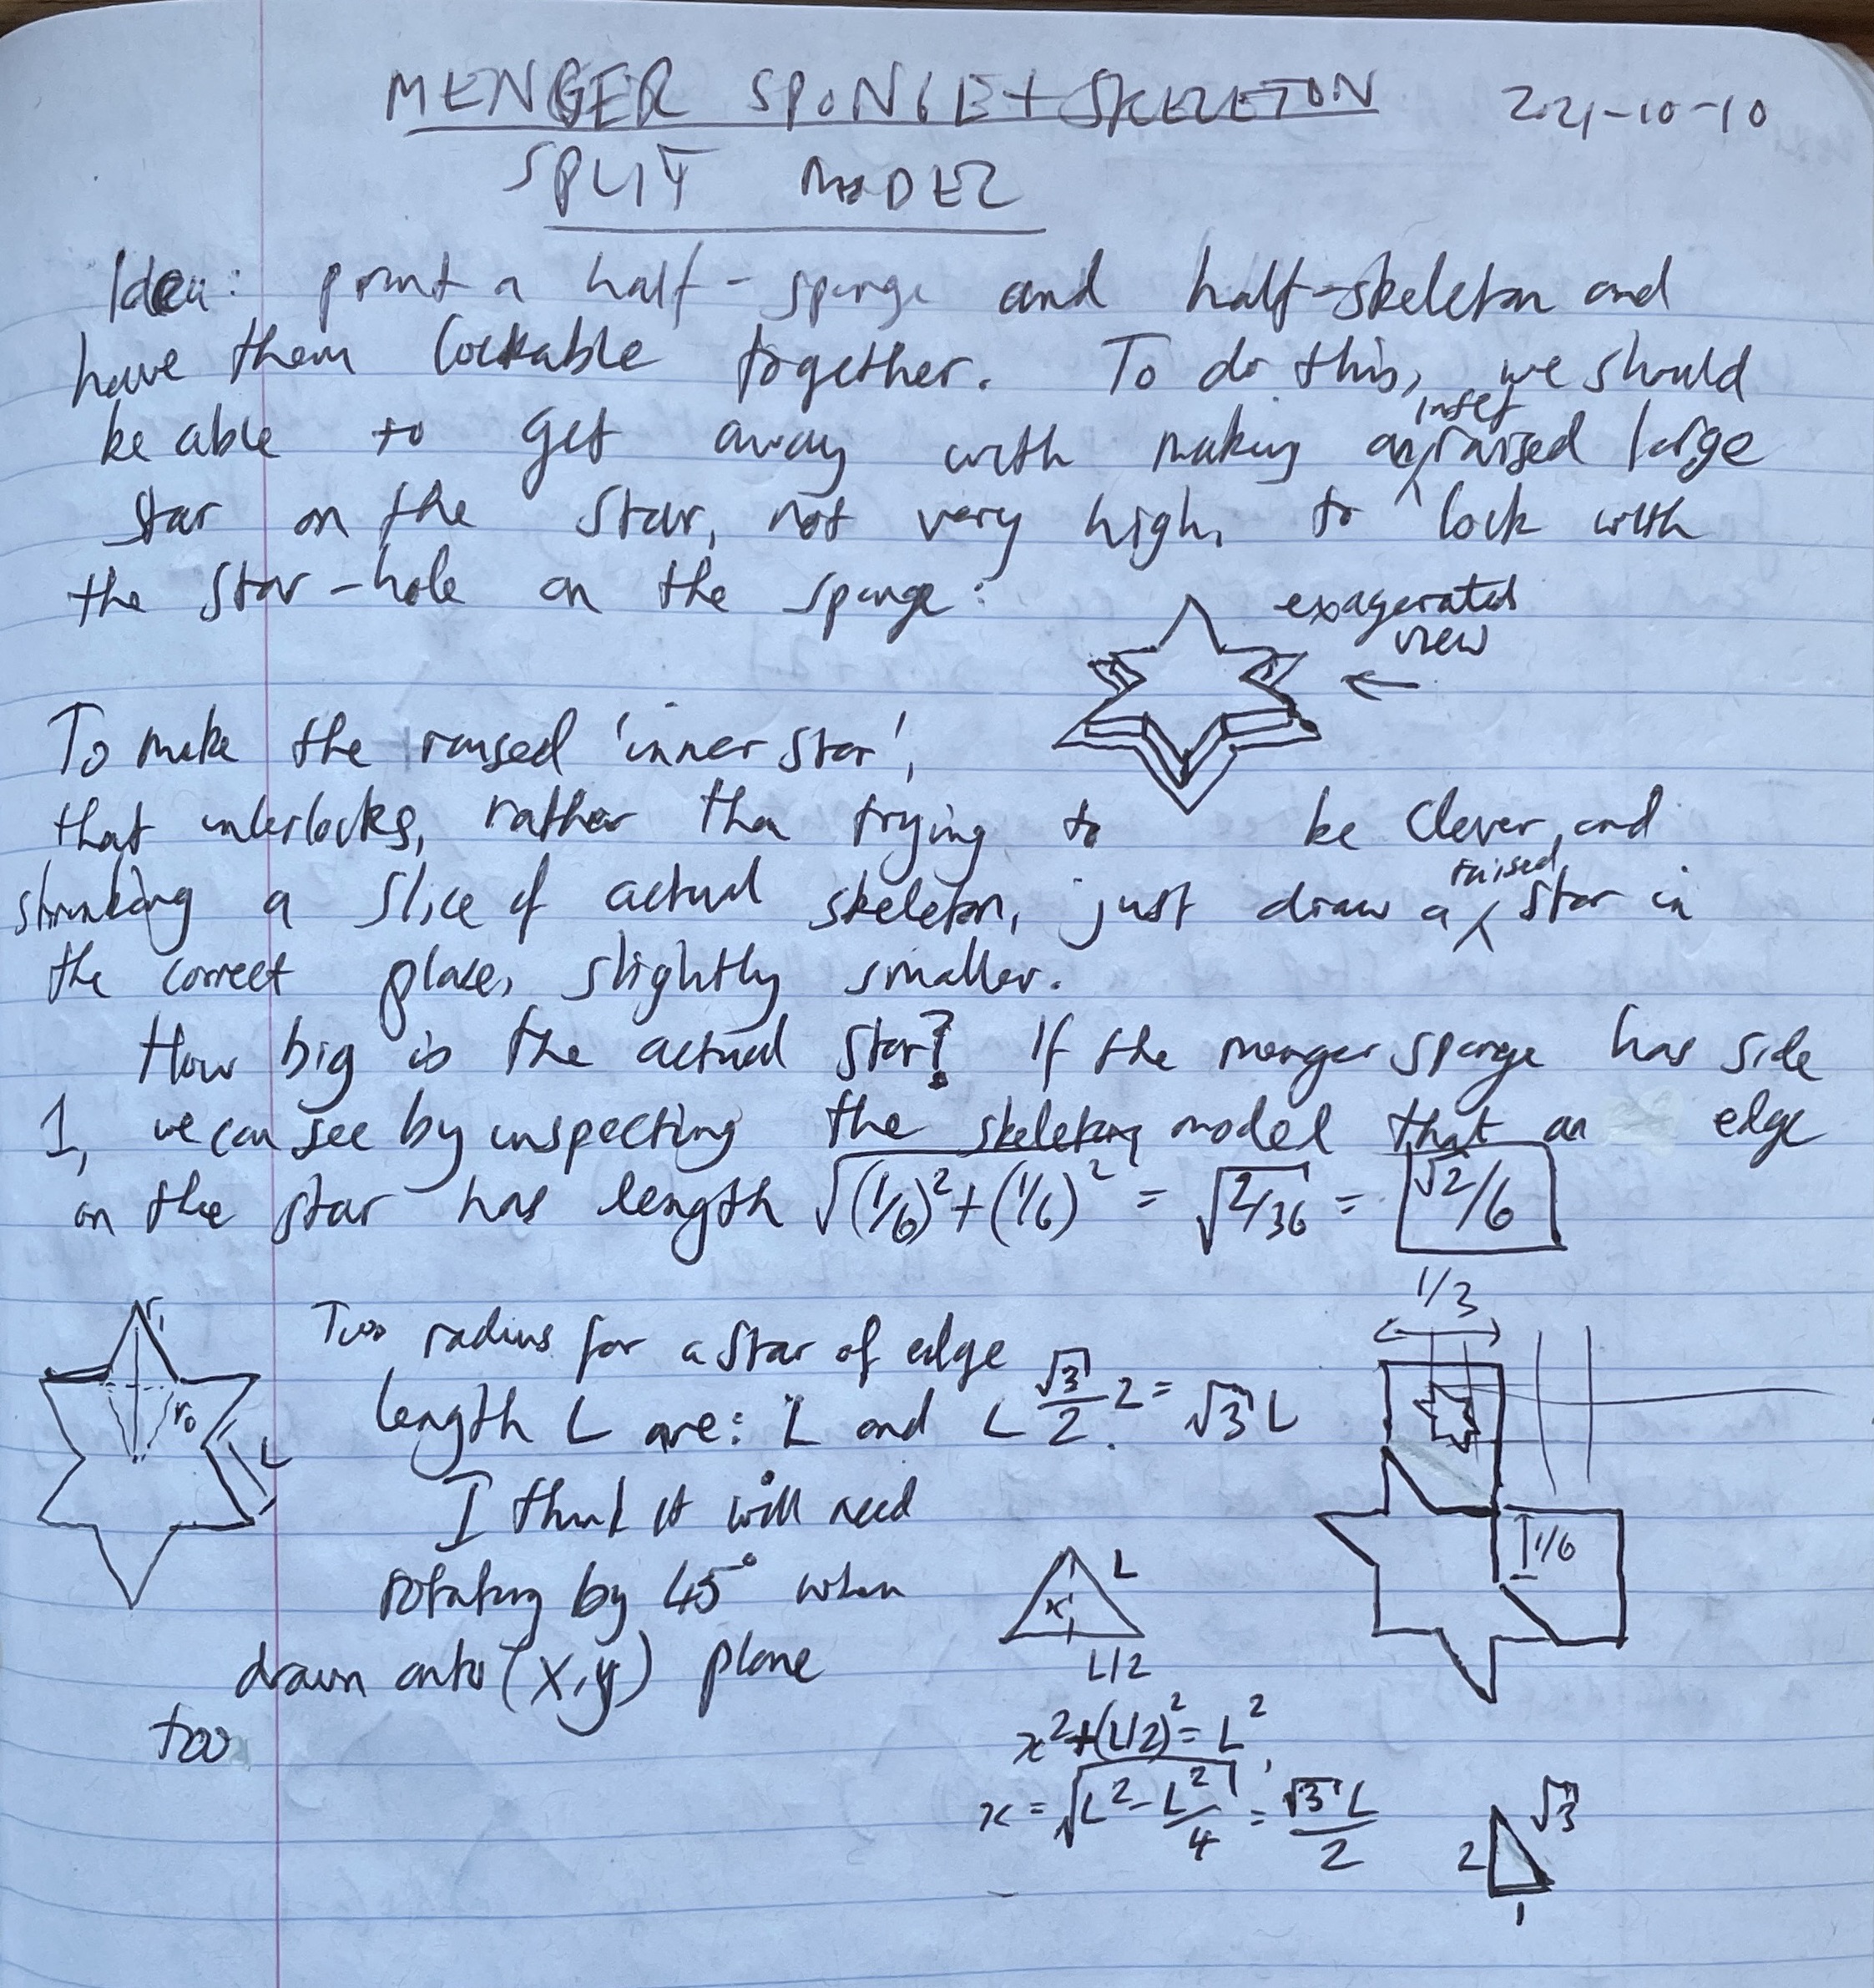 MENGER SPONGE + SKELETON 2021-10-10
SPLIT MODEL
Idea: print a half-sponge and half-skeleton and
have them lockable together. To do this, we should
be able to get away with making an inset raised large
star on the star, not very high, to lock with
the star-hole on the sponge:
exagerated
view
To make the raised 'inner star',
that interlocks, rather than trying to be clever, and
shrinking a slice of actual skeleton, just draw a raised star in
the correct place, slightly smaller.
How big is the actual star? If the menger sponge has side
1, we can see by inspecting the skeleton model that an edge
on the star has length √((1/6)²+(1/6)²) = √(2/36) = √2/6
1/3
r₁
r₀
L
Two radius for a star of edge
length L are: L and L √3/2 · 2 = √3 L
I think it will need
rotating by 45° when
drawn onto (x,y) plane
too
1/6
L
x
L/2
x²+(L/2)² = L²,
x = √(L² - L²/4) = √3 L/2
√3
2
1